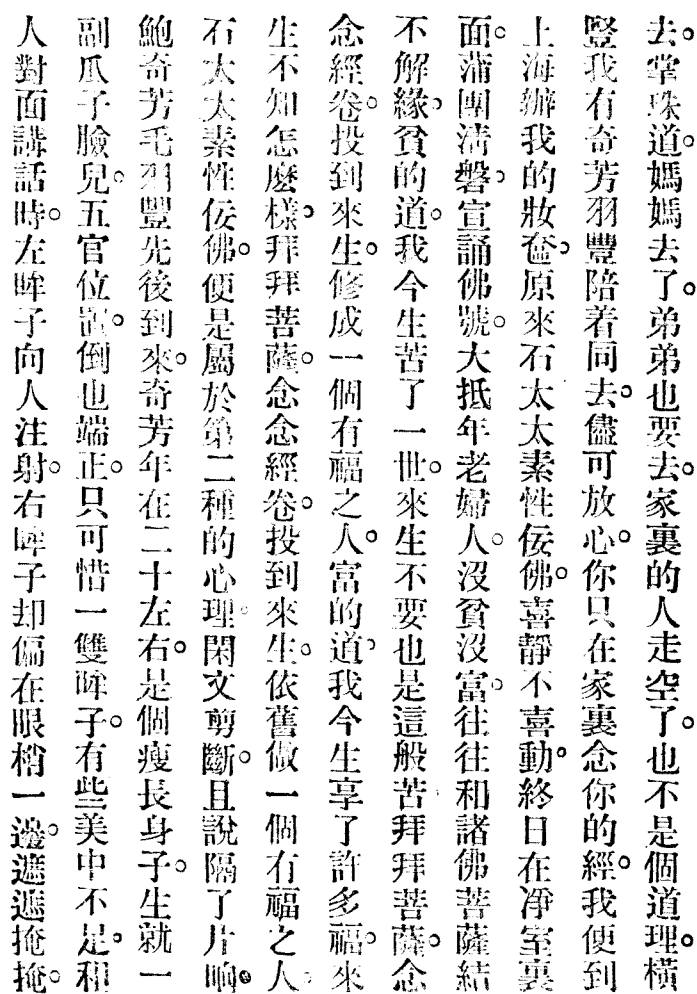 去。掌珠道。媽媽去了。弟弟也要去。家裏的人走空了。也不是個道理。橫
豎我有奇芳羽豐陪着同去。儘可放心。你只在家裏念你的經。我便到
上海辦我的妝奩。原來石太太素性佞佛。喜靜不喜動。終日在凈室裏
面。蒲團淸磐。宣誦佛號。大抵年老婦人。沒貧沒富。往往和諸佛菩薩結
不解緣。貧的道。我今生苦了一世。來生不要也是這般苦。拜拜菩薩。念
念經卷。投到來生。修成一個有福之人。富的道。我今生享了許多福。來
生不知怎麼樣。拜拜菩薩。念念經卷。投到來生。依舊做一個有福之人。
石太太素性佞佛。便是屬於第二種的心理。閑文剪斷。且說隔了片晌。
鮑奇芳毛羽豐先後到來。奇芳年在二十左右。是個瘦長身子。生就一
副瓜子臉兒。五官位置。倒也端正。只可惜一雙眸子。有些美中不足。和
人對面講話時。左眸子向人注射。右眸子却偏在眼梢一邊。遮遮掩掩。